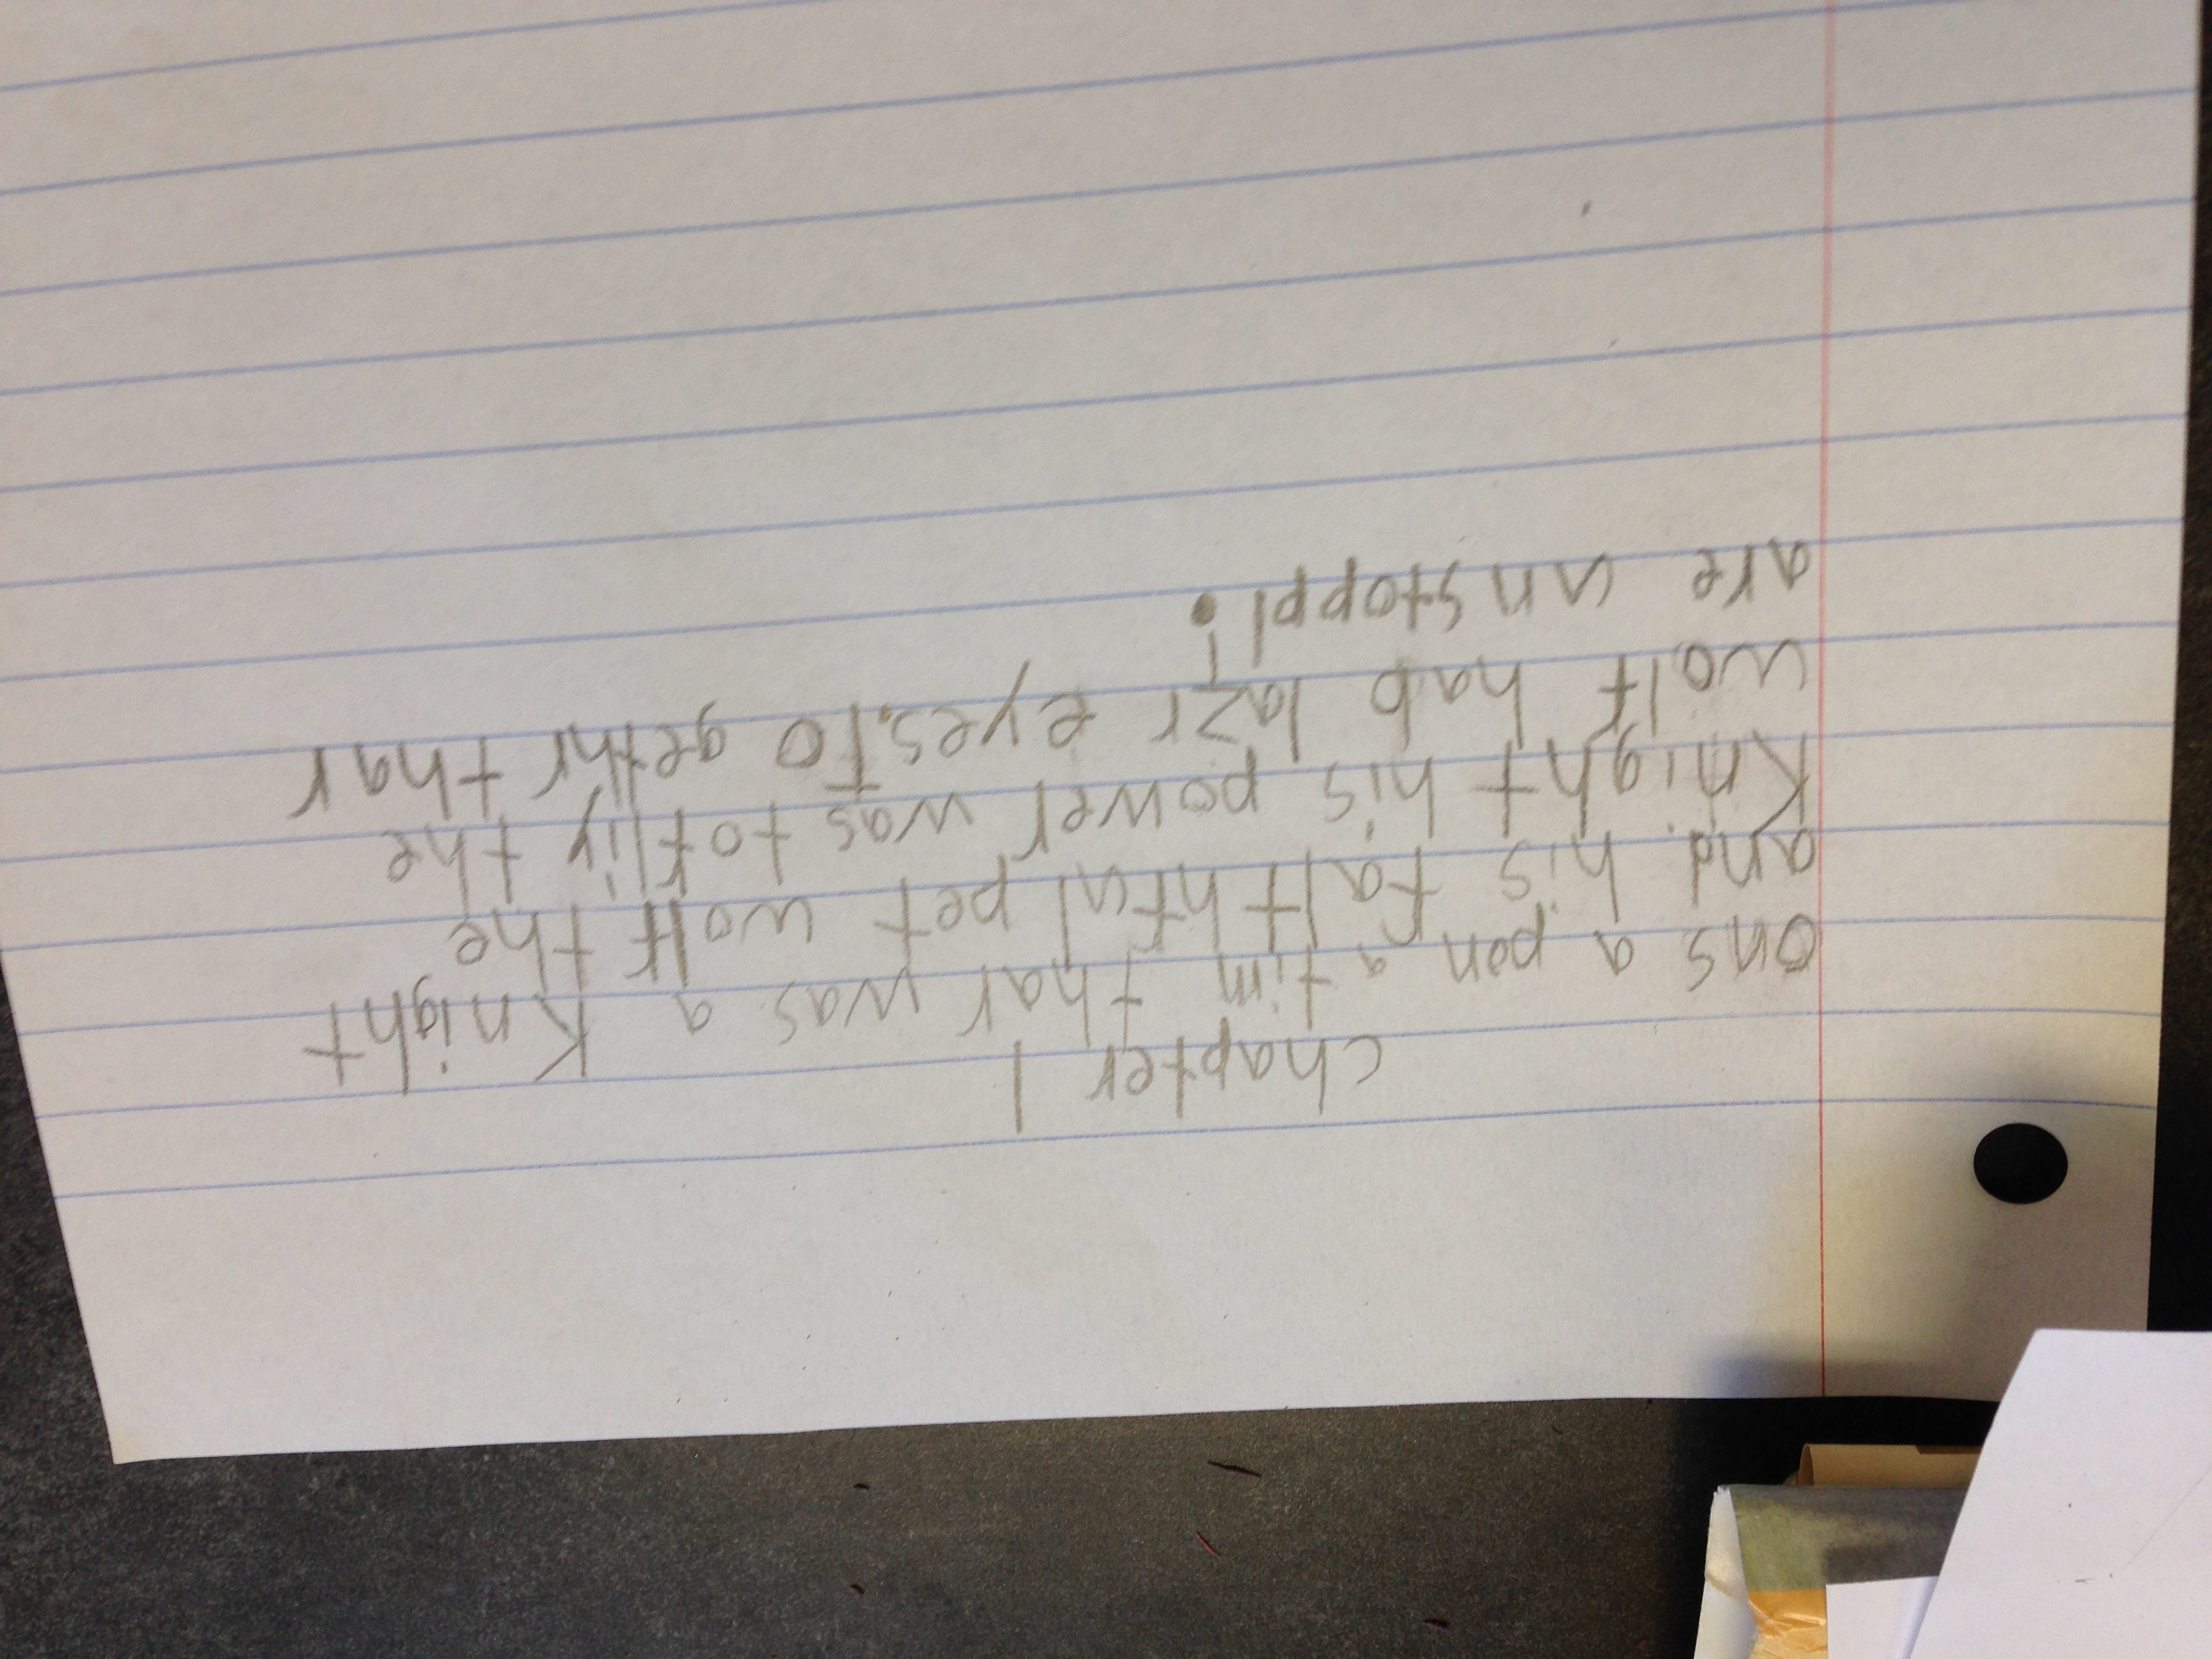 chapter 1
ons a pon a tim thar was a Knight
and his faithful pet wolf the
Knight his power was to fliy the
wolf hab lazr eyes. To gethr thar
are unstoppl!